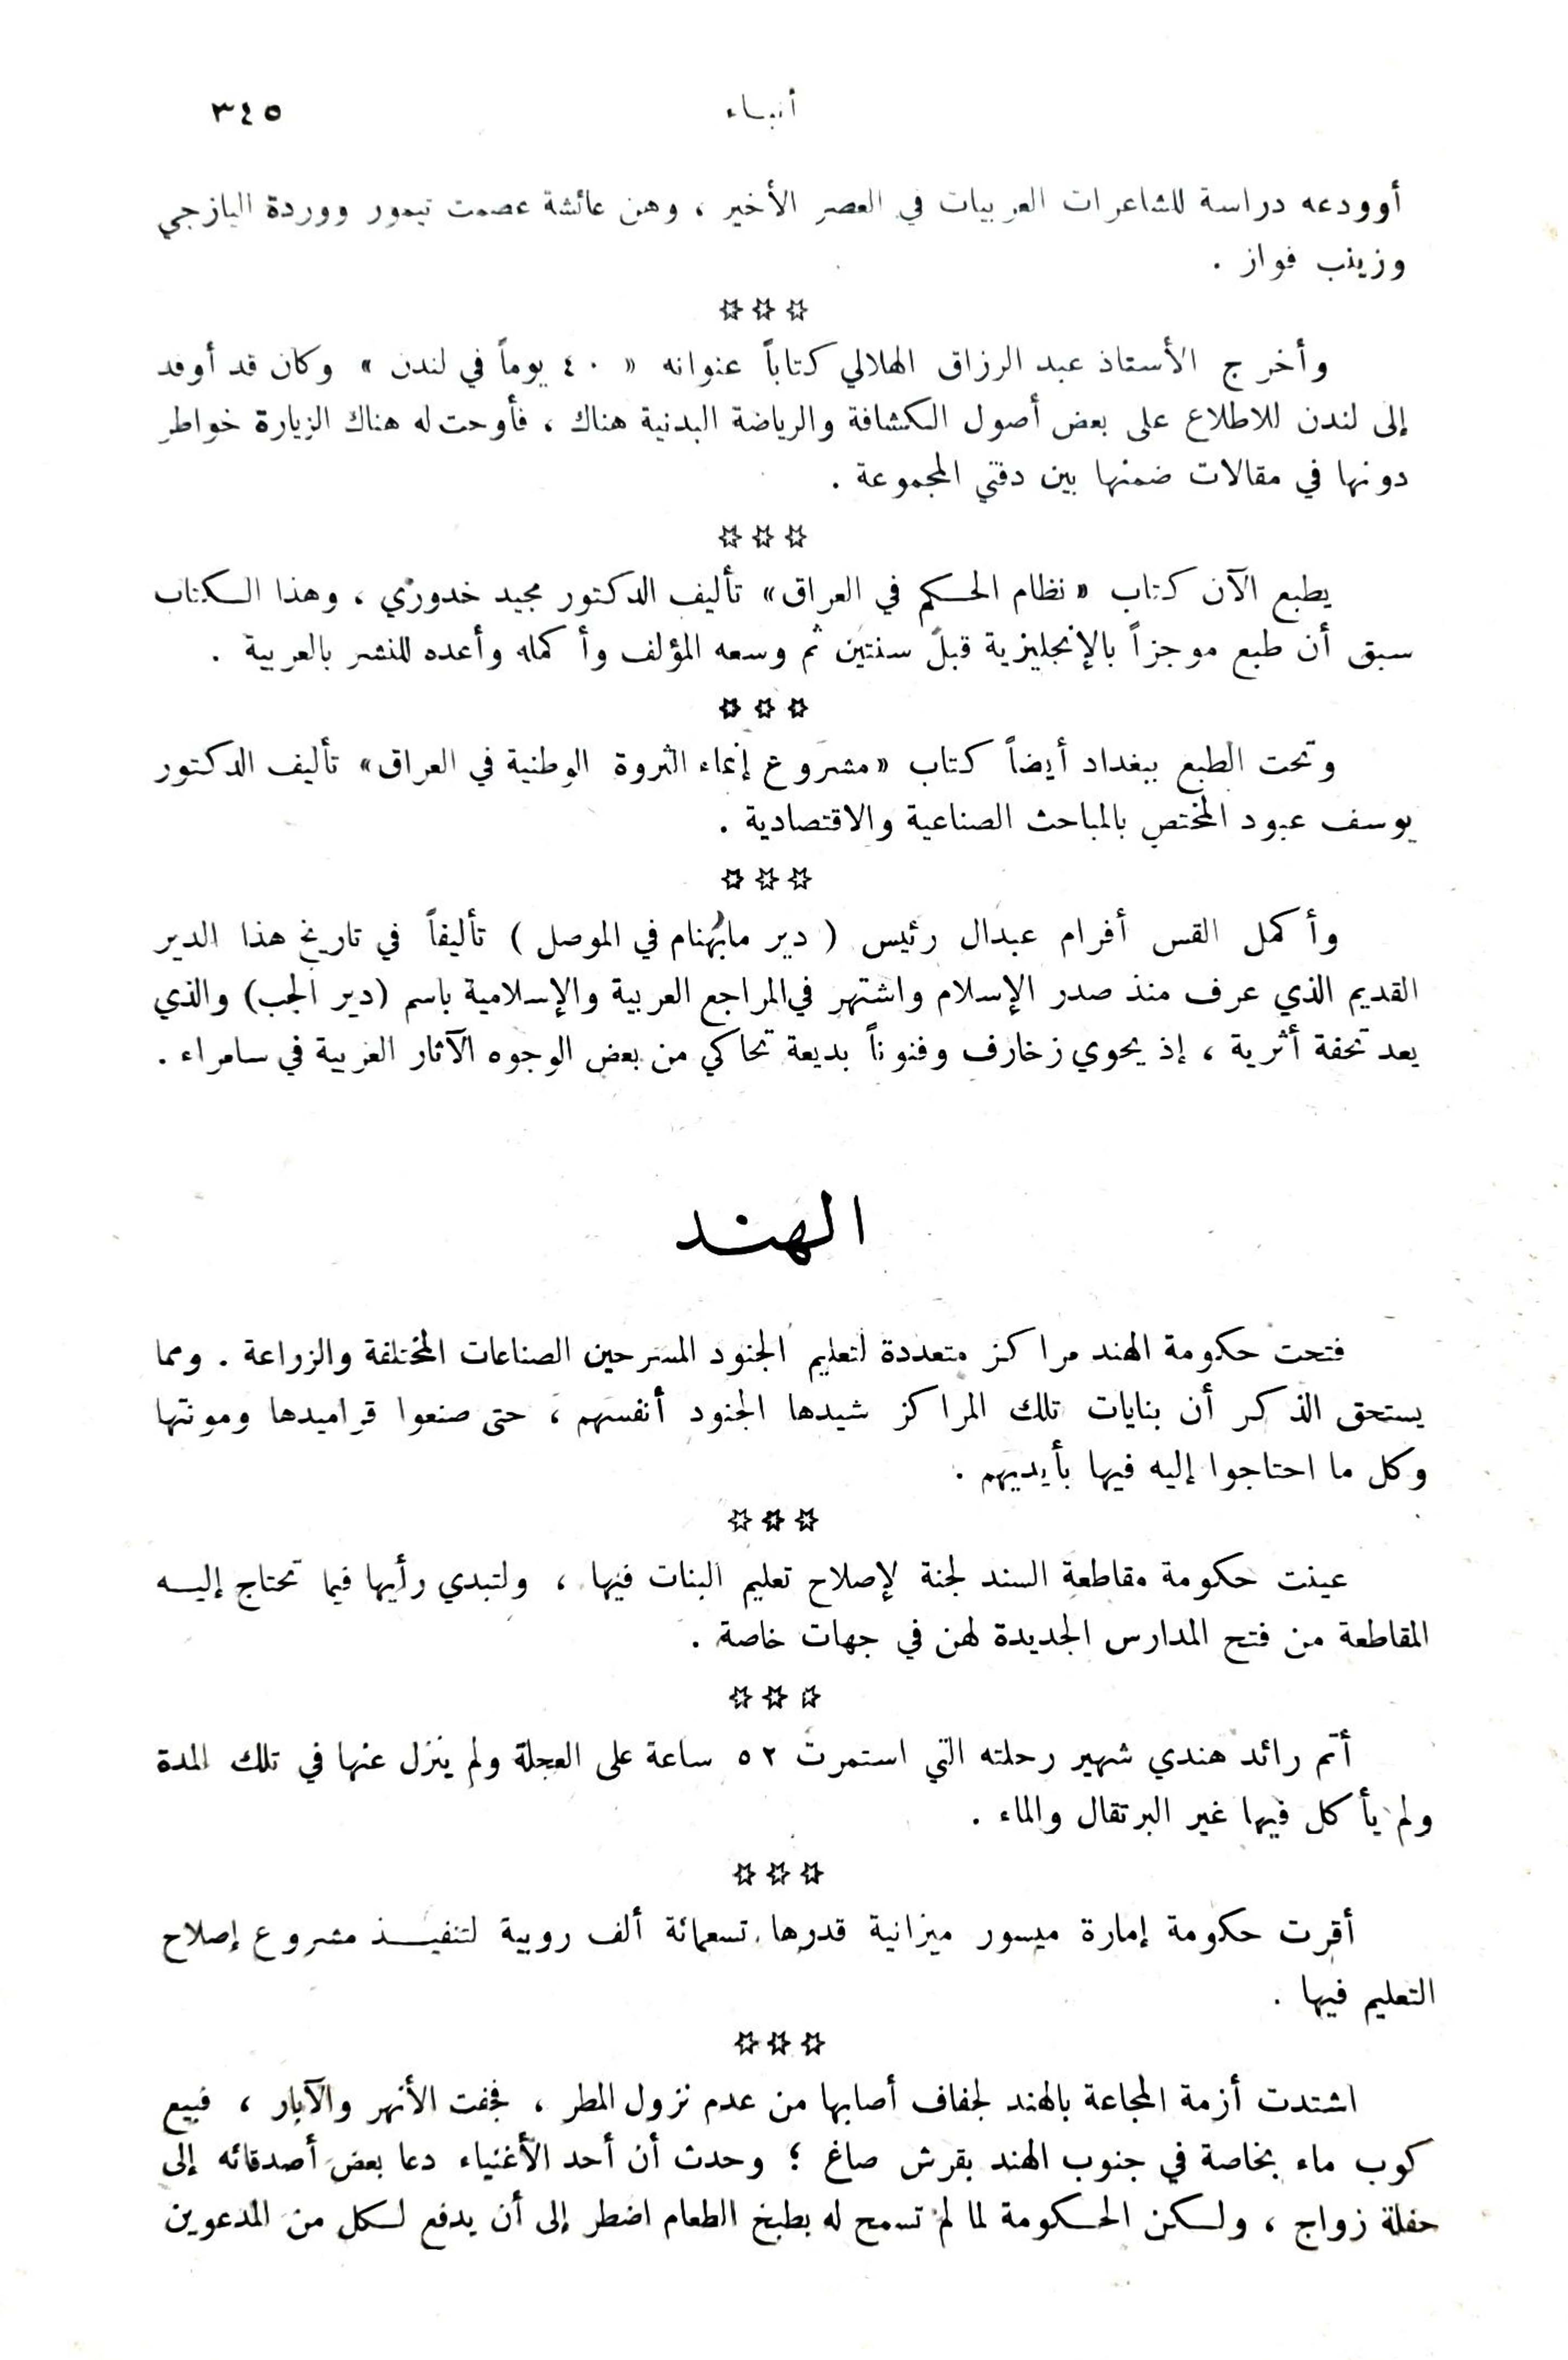 أنباء
٣٤٥
أوودعه دراسة للشاعرات العربيات في العصر الأخير ، وهن عائشة عصمت تيمور ووردة اليازجي
وزينب فواز .
☆☆☆
وأخرج الأستاذ عبد الرزاق الهلالي كتاباً عنوانه « ٤٠ يوماً في لندن » وكان قد أوفد
إلى لندن للاطلاع على بعض أصول الكشافة والرياضة البدنية هناك ، فأوحت له هناك الزيارة خواطر
دونها في مقالات ضمنها بين دفتي المجموعة .
☆☆☆
يطبع الآن كتاب « نظام الحكم في العراق» تأليف الدكتور مجيد خدوري ، وهذا الكتاب
سبق أن طبع موجزاً بالإنجليزية قبل سنتين ثم وسعه المؤلف وأكمله وأعده للنشر بالعربية .
☆☆☆
وتحت الطبع ببغداد أيضاً كتاب «مشروع إنماء الثروة الوطنية في العراق» تأليف الدكتور
يوسف عبود المختص بالمباحث الصناعية والاقتصادية .
☆☆☆
وأكمل القس أفرام عبدال رئيس ( دير مابهنام في الموصل ) تأليفاً في تاريخ هذا الدير
القديم الذي عرف منذ صدر الإسلام واشتهر في المراجع العربية والإسلامية باسم (دير الجب) والذي
يعد تحفة أثرية ، إذ يحوي زخارف وفنوناً بديعة تحاكي من بعض الوجوه الآثار العربية في سامراء .
الهند
فتحت حكومة الهند مراكز متعددة لتعليم الجنود المسرحين الصناعات المختلفة والزراعة . ومما
يستحق الذكر أن بنايات تلك المراكز شيدها الجنود أنفسهم ، حتى صنعوا قراميدها ومونتها
وكل ما احتاجوا إليه فيها بأيديهم .
☆☆☆
عينت حكومة مقاطعة السند لجنة لإصلاح تعليم البنات فيها ، ولتبدي رأيها فيما تحتاج إليه
المقاطعة من فتح المدارس الجديدة لهن في جهات خاصة .
☆☆☆
أتم رائد هندي شهير رحلته التي استمرت ٥٢ ساعة على العجلة ولم ينزل عنها في تلك المدة
ولم يأكل فيها غير البرتقال والماء .
☆☆☆
أقرت حكومة إمارة ميسور ميزانية قدرها تسعمائة ألف روبية لتنفيذ مشروع إصلاح
التعليم فيها .
☆☆☆
اشتدت أزمة المجاعة بالهند لجفاف أصابها من عدم نزول المطر ، فجفت الأنهر والآبار ، فبيع
كوب ماء بخاصة في جنوب الهند بقرش صاغ ؛ وحدث أن أحد الأغنياء دعا بعض أصدقائه إلى
حفلة زواج ، ولكن الحكومة لما لم تسمح له بطبخ الطعام اضطر إلى أن يدفع لكل من المدعوين